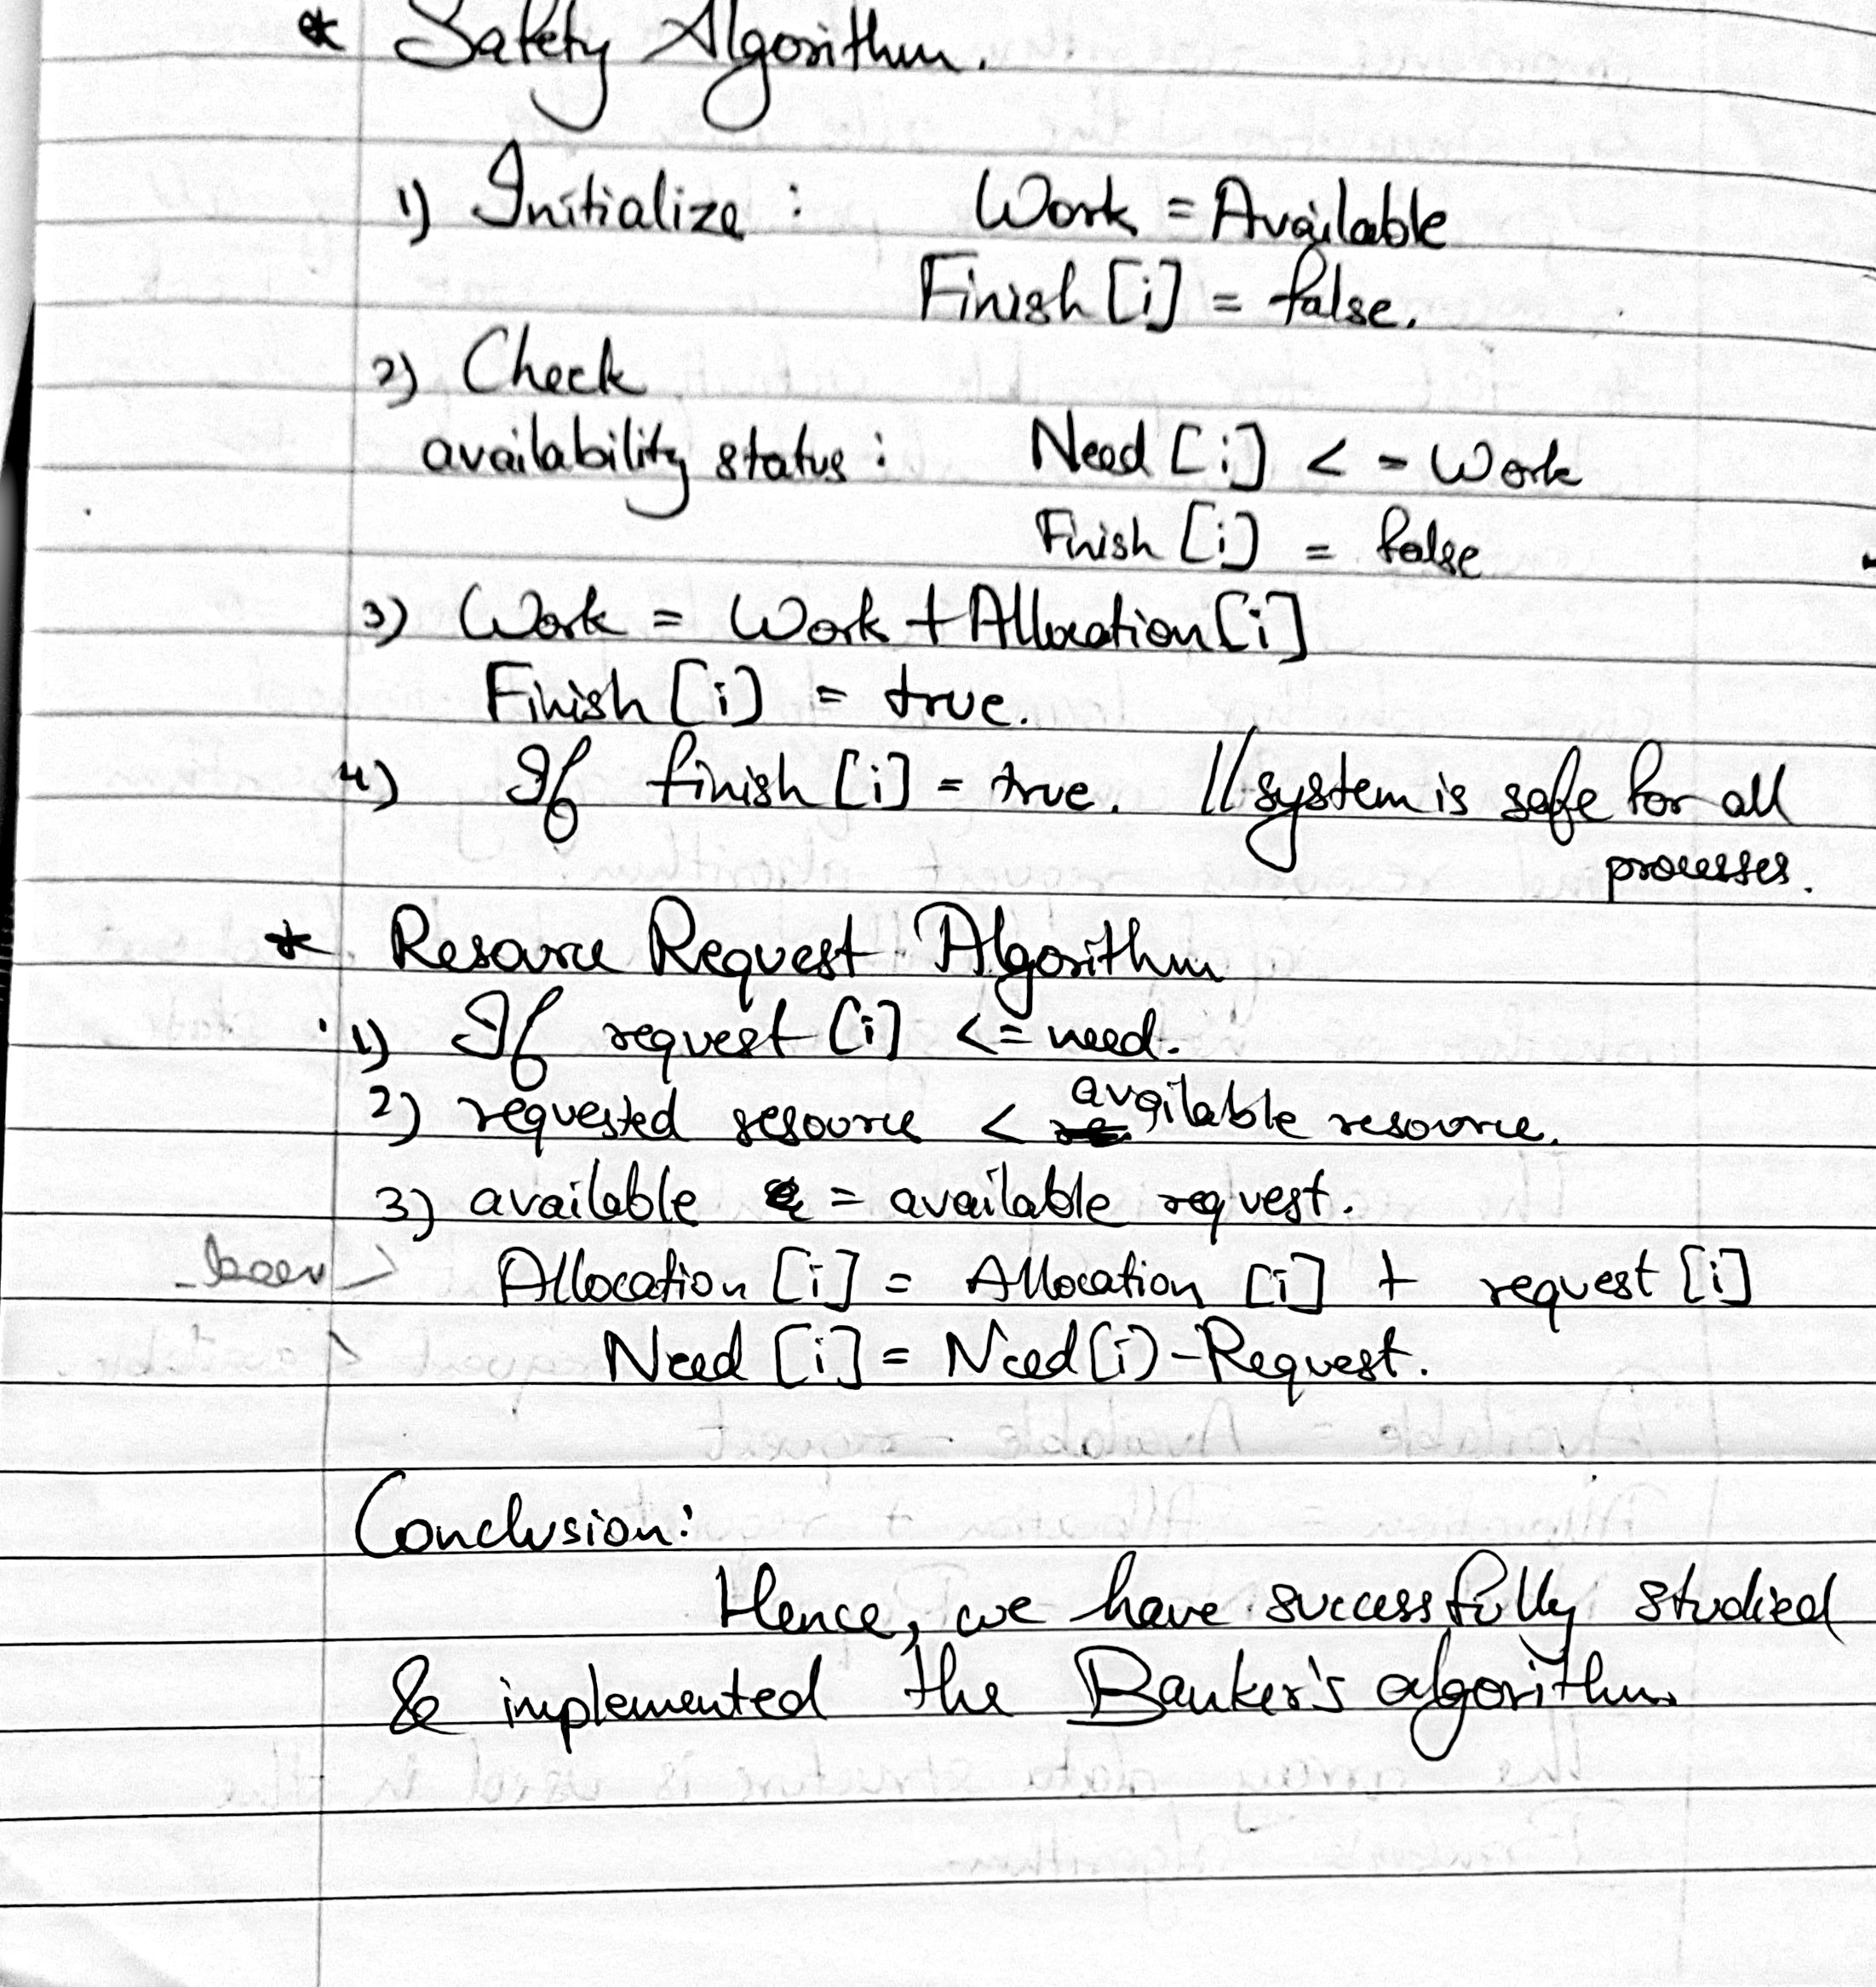 * Safety Algorithm.
1) Initialize : Work = Available
Finish [i] = false.
2) Check
availability status : Need [i] < = Work
Finish [i] = false
3) Work = Work + Allocation [i]
Finish [i] = true.
4) If finish [i] = true. // system is safe for all
processes.
* Resource Request Algorithm
1) If request [i] <= need.
2) requested resource < available resource.
3) available = available request.
Allocation [i] = Allocation [i] + request [i]
Need [i] = Need (i) - Request.
Conclusion:
Hence, we have successfully studied
& implemented the Banker's algorithm.